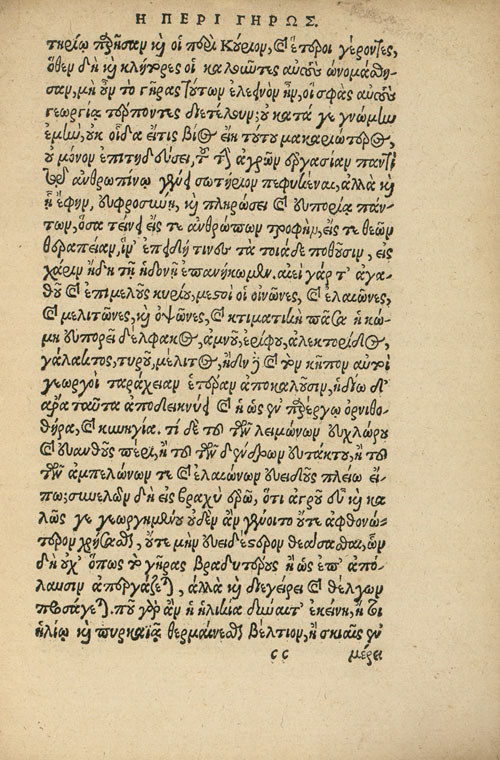 Η ΠΕΡΙ ΓΗΡΩΣ.
τηρίῳ προῆσαν καὶ οἱ περὶ Κύριον, καὶ ἕτεροι γέροντες,
ὅθεν δὴ καὶ κλήτορες οἱ καλοῦντες αὐτοὺς ὠνομάσθη-
σαν, μὴ οὖν τὸ γῆρας τούτων ἐλεεινὸν ἦν, οἱ σφᾶς αὐτοὺς
γεωργίᾳ τέρποντες διετέλουν; οὐ κατά γε γνώμην
ἐμὴν, οὐκ οἶδα εἴ τις βίος εἴη τούτου μακαριώτερος,
οὐ μόνον ἐπιτηδεύσει, τῷ τὴν ἀγρῶν ἐργασίαν παντὶ
τῷ ἀνθρωπίνῳ γένει σωτήριον πεφυκέναι, ἀλλὰ καὶ
ᾗ ἔφην, εὐφροσύνῃ, καὶ πληρώσει καὶ εὐπορίᾳ πάν-
των, ὅσα τείνει εἴς τε ἀνθρώπων τροφὴν, εἴς τε θεῶν
θεραπείαν, ἵν' ἐπειδή τινες τὰ τοιάδε ποθοῦσιν, εἰς
χάριν ἤδη τῇ ἡδονῇ ἐπανήκωμεν. ἀεὶ γάρ τ' ἀγα-
θοῦ καὶ ἐπιμελοῦς κυρίου, μεστοὶ οἱ οἰνῶνες, καὶ ἐλαιῶνες,
καὶ μελιτῶνες, καὶ ὀψῶνες, καὶ κτιματικὴ πᾶσα ἡ κώ-
μη εὐπορεῖ δέλφακος, ἀμνοῦ, ἐρίφου, ἀλεκτορίδος,
γάλακτος, τυροῦ, μέλιτος, ἤδη δὲ καὶ τὸν κῆπον αὐτοὶ
γεωργοὶ ταράχειαν ἑτέραν ἀποκαλοῦσιν, ἡδίω δ'
ἄρα ταῦτα ἀποδεικνύει καὶ ἡ ὡς ἐν παρέργῳ ὀρνιθο-
θήρα, καὶ κυνηγία. τί δὲ περὶ τῶν λειμώνων εὐχλώρου
καὶ εὐανθοῦς πέρι, ἢ περὶ τῶν δένδρων εὐτάκτου, ἢ περὶ
τῶν ἀμπελώνων τε καὶ ἐλαιώνων εὐειδοῦς πλείω εἴ-
πω; συνελὼν δὴ εἰς βραχὺ ἐρῶ, ὅτι ἀγροῦ εὖ καὶ κα-
λῶς γε γεωργημένου οὐδὲν ἂν γένοιτο οὔτε ἀφθονώ-
τερον χρῆσθαι, οὔτε μὴν εὐειδέστερον θεάσασθαι, ὧν
δὴ οὐχ' ὅπως τὸ γῆρας βραδυτέρους ἢ ὡς ἐπ' ἀπό-
λαυσιν ἀπεργάζεται, ἀλλὰ καὶ διεγείρει καὶ θέλγων
προσάγεται. ποῦ γὰρ ἂν ἡ ἡλικία δύναιτ' ἐκείνη, ἢ ἐν
ἡλίῳ καὶ πυρκαϊᾷ θερμαίνεσθαι βέλτιον, ἢ σκιαῖς ἐν
cc μέρει